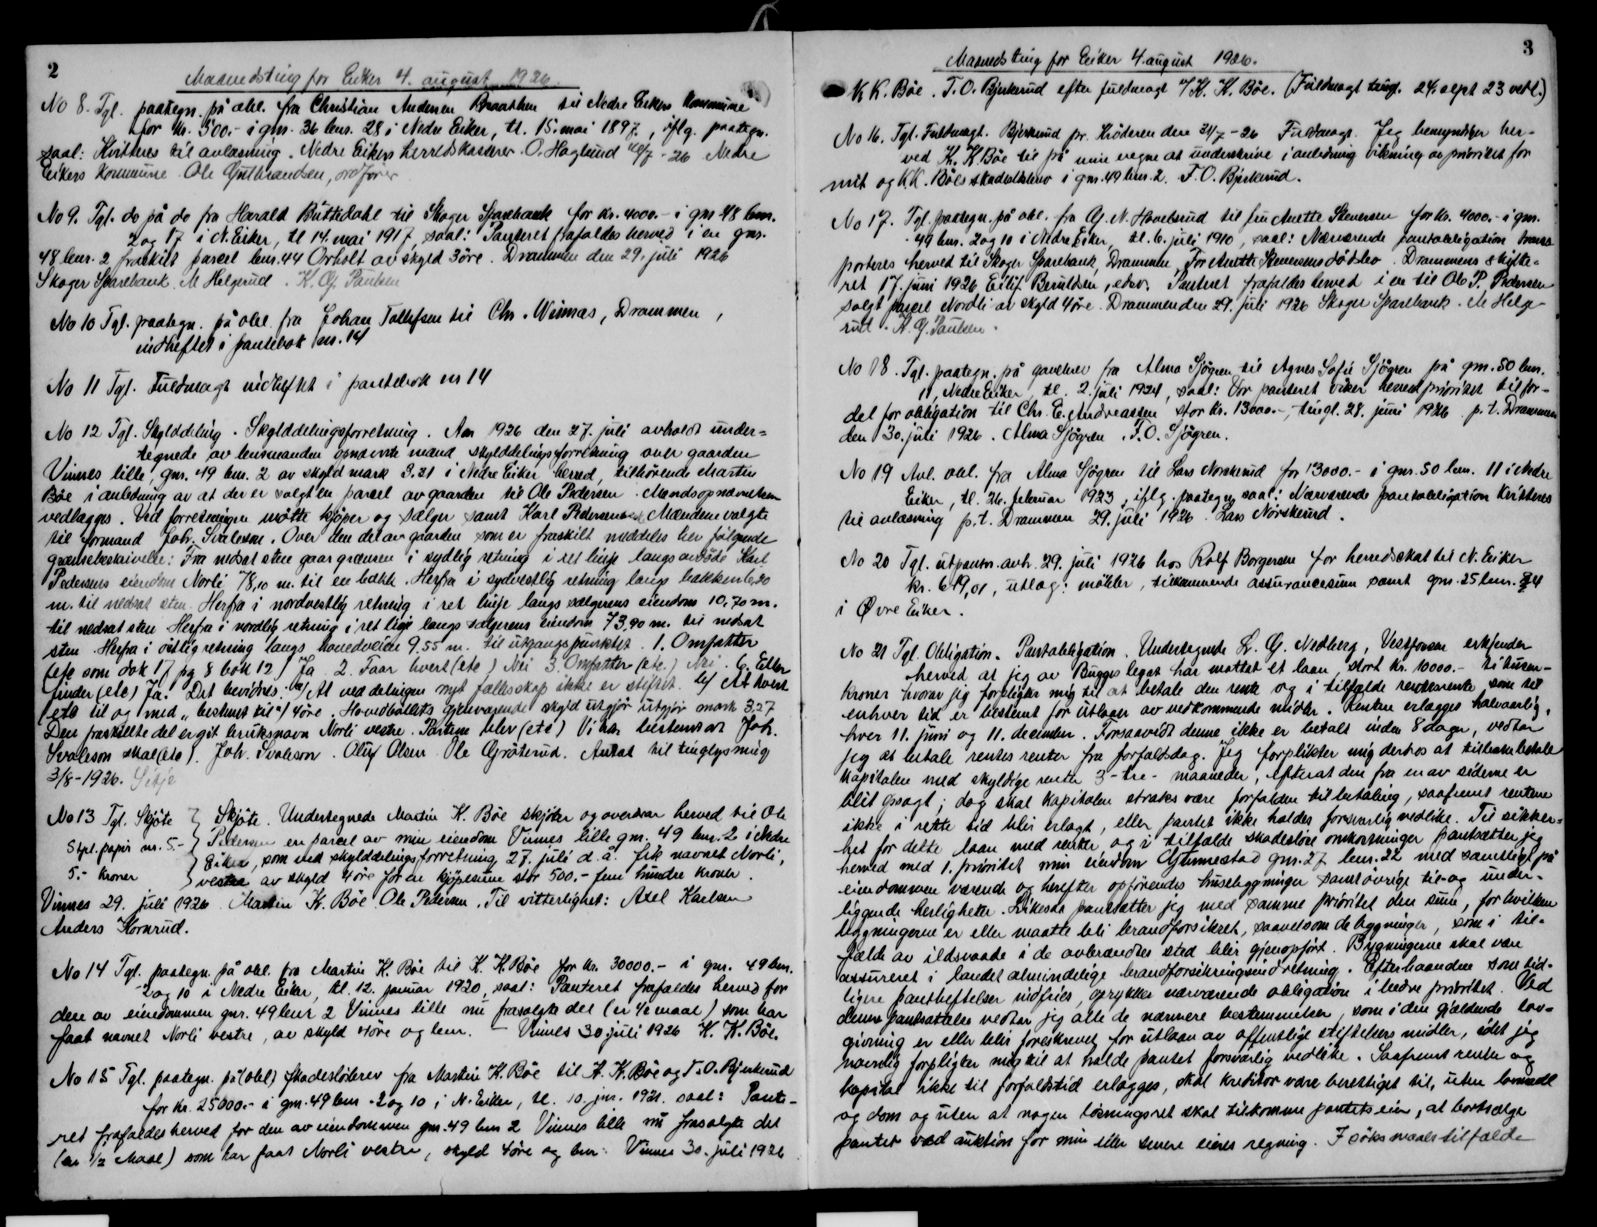 2
Maanedsting for Eiker 4. august 1926.
No 8. Tgl. paategn. på obl. fra Christian Andersen Braathen til Nedre Eikers Kommune
for kr. 500.- i gnr. 36 bnr. 28 i Nedre Eiker, tl. 15. mai 1897, iflg. paategn.
saal: Kvitteres til avlæsning. Nedre Eikers Herredskasserer O. Haglund 10/7 - 26 Nedre
Eikers Kommune Ole Gulbrandsen, ordfører
No 9. Tgl. do på do fra Harald Buttedahl til Skoger Sparebank for kr. 4000.- i gnr 48 bnr.
2 og 17 i N. Eiker, tl 14. mai 1917, saal: Panteret frafaldes herved i en gnr.
48 bnr. 2 fraskilt parcel bnr. 44 Orholt av skyld 3 øre. Drammen den 29. juli 1926
Skoger Sparebank. M Helgerud. K. Gj. Paulsen
No 10 Tgl. paategn. på obl. fra Johan Tollefsen til Chr. Wiinnas, Drammen,
indheftet i pantebok nr. 14
No 11 Tgl. Fuldmagt indheftet i pantebok nr 14
No 12 Tgl. Skylddeling. Skylddelingsforretning. Aar 1926 den 27. juli avholdt under-
tegnede av lensmanden opnævnte mænd skylddelingsforretning over gaarden
Vinnes lille, gnr. 49 bnr. 2 av skyld mark 3.31 i Nedre Eiker herred, tilhørende Martin
Bøe i anledning av at der er solgt en parcel av gaarden til Ole Pedersen. Mandsopnævnelsen
vedlægges. Ved forretningen møtte kjøper og sælger samt Karl Pedersen. Mændene valgte
til formand Joh. Svaleson. Over den del av gaarden som er fraskilt meddeles her følgende
grænsebeskrivelse: Fra nedsat sten gaar grænsen i sydlig retning i ret linje langs avdøde Karl
Pedersens eiendom Norli 78,10 m. til en bækk. Herfra i sydvestlig retning langs bækken 6,20
m. til nedsat sten. Herfra i nordvestlig retning i ret linje langs sælgerens eiendom 10,70 m.
til nedsat sten Herfra i nordlig retning i ret linje langs sælgerens eiendom 73,90 m. til nedsat
sten Herfra i østlig retning langs hovedveien 9.55 m. til utgangspunktet. 1. Omfatter
(etc som dok 17 pg 8 bok 12) Ja 2. Faar hvert (etc) Nei 3. Omfatter (etc.) Nei. 6. Eller
finder (etc) Ja. Det bevidnes: a/ At ved delingen nyt fællesskap ikke er stiftet. b/ At hvert
(etc til og med "bestemt til") 4 øre. Hovedbøllets gjenværende skyld utgjør utgjør mark 3.27
Den fraskilte del er git bruksnavn Norli vestre. Partene blev (etc) Vi har bestemt at Joh.
Svaleson skal (etc). Joh. Svaleson. Oluf Olsen. Ole Grøterud. Antat til tinglysning
3/8 - 1926.
No 13 Tgl. Skjøte
Stpl. papir nr. 5.-
5.- kroner
Skjøte. Undertegnede Martin K. Bøe skjøter og overdrar herved til Ole
Pedersen en parcel av min eiendom Vinnes lille gnr. 49 bnr. 2 i Nedre
Eiker, som ved skylddelingsforretning 27. juli d. å. fik navnet Norli,
vestre av skyld 4 øre for en kjøpesum stor 500,- fem hundre kroner.
Vinnes 29. juli 1926 Martin K. Bøe. Ole Pedersen. Til vitterlighet: Axel Karlsen
Anders Kornrud.
No 14 Tgl. paategn. på obl. fra Martin K. Bøe til K. K. Bøe for kr. 30000.- i gnr. 49 bnr.
2 og 10 i Nedre Eiker, tl. 12. januar 1920, saal: Panteret frafaldes herved for
den av eiendommen gnr. 49 bnr 2 Vinnes lille nu frasolgte del (en ½ maal) som har
faat navnet Norli vestre, av skyld 4 øre og bnr. - Vinnes 30 juli 1926 K. K. Bøe.
No 15 Tgl. paategn. på (obl) skadesløsbrev fra Martin K. Bøe til K. K. Bøe og T. O. Bjerkerud
for kr. 25000.- i gnr. 49 bnr - 2 og 10 i N. Eiker, tl. 10. jan. 1921. saal: Pante-
ret frafaldes herved for den av eiendommen gnr. 49 bnr 2 Vinnes lille nu frasolgte del
(en ½ Maal) som har faat Norli vestre, skyld 4 øre og bnr: Vinnes 30. juli 1926
3
Maanedsting for Eiker 4. august 1926.
K. K. Bøe. T. O. Bjerkerud efter fuldmagt K. K. Bøe. (Fuldmagt tingl. 24 sept 23 vedl.)
No 16. Tgl. Fuldmagt. Bjerkerud pr. Krøderen den 31/7 - 26 Fuldmagt. Jeg bemyndiger her-
ved K. K Bøe til på mine vegne at underskrive i anledning vikning av prioritet for
mit og K K. Bøes skadesløsbrev i gnr. 49 bnr. 2. T. O. Bjerkerud.
No 17. Tgl. paategn. på obl. fra Gj. N. Hovelsrud til fru Anette Stenersen for kr. 4000.- i gnr.
49 bnr. 2 og 10 i Nedre Eiker, tl. 6. juli 1910, saal: Nærværende pantobligation trans-
porteres herved til Skoger Sparebank, Drammen, For Anette Stenersens dødsbo. Drammens skifte-
ret 17. juni 1926 Eilif Berulsen, edsv. Panteret frafaldes herved i en til Ole P. Pedersen
solgt parcel Nordli av skyld 4 øre. Drammen den 29. juli 1926 Skoger Sparebank. M Helge-
rud. K. G. Paulsen.
No 18. Tgl. paategn. på gavebrev fra Alma Sjøgren til Agnes Sofie Sjøgren på gnr. 50 bnr.
11, Nedre Eiker, tl. 2. juli 1924, saal: Vor panteret viker herved prioritet til for-
del for obligation til Chr. E. Andreassen stor kr. 13000.-, tingl. 28. juni 1926 p. t. Drammen
den 30. juli 1926. Alma Sjøgren. F. O. Sjøgren.
No 19 Avl. obl. fra Alma Sjøgren til Lars Norskerud for 13000.- i gnr. 50 bnr. 11 i Nedre
Eiker, tl. 26. februar 1923, iflg. paategn. saal: Nærværende pantobligation kvitteres
til avlæsning p. t. Drammen 29. juli 1926. Lars Norskerud.
No 20 Tgl. utpantn. avh. 29. juli 1926 hos Rolf Borgersen for herredsskat til N. Eiker
kr. 619,01, utlæg: møbler, tilkommende assurancesum samt gnr. 25 bnr. 24
i Øvre Eiker.
No 21 Tgl. Obligation. Pantobligation. Undertegnede L. G. Nedberg, Vestfossen erkjender
herved at jeg av Bugges legat har mottat et laan stort kr. 10000.- ti tusen-
kroner hvorav jeg forpligter mig til at betale den rente og i tilfælde rentesrente som til
enhver tid er bestemt for utlaan av vedkommende midler. Renten erlægges halvaarlig,
hver 11. juni og 11. december. Forsaavidt denne ikke er betalt inden 8 dager, vedtar
jeg at betale rentes renter fra forfaldsdag. Jeg forplikter mig derhos at tilbakebetale
kapitalen med skyldige renter 3 - tre - maaneder, efterat den fra en av siderne er
blit opsagt; dog skal kapitalen straks være forfalden til betaling, saafremt rentene
ikke i rette tid blir erlagt, eller pantet ikke holdes forsvarlig vedlike. Til sikker-
het for dette laan med renter og i tilfælde skadesløse omkostninger pantsætter jeg
herved med 1. prioritet min eiendom Gjennestad gnr. 27 bnr. 22 med samtlige på
eiendommen værende og herefter opførendes husebygninger samt øvrige til- og under-
liggende herligheter. Likesaa pantsætter jeg med samme prioritet den sum, for hvilken
bygningerne er eller maatte bli brandforsikret, saavelsom de bygninger, som i til-
fælde av ildsvaade i de avbrændtes sted blir gjenopført. Bygningerne skal være
assureret i landet almindelige brandforsikringsindretning. Efterhaanden som tid-
ligere pantheftelser indfries, oprykker nærværende obligation i bedre prioritet. Ved
denne pantsættelse vedtar jeg alle de nærmere bestemmelser, som i den gjældende lov-
givning er eller blir foreskrevet for utlaan av offentlige stiftelsers midler, idet jeg
navnlig forpligter mig til at holde pantet forsvarlig vedlike. Saafremt renter og
kapital ikke til forfaldstid erlægges, skal kreditor være berettiget til, uten lovmaal
og dom og uten at nogen løsningsret skal tilkomme pantets eier, at bortsælge
pantet ved auktion for min eller senere eieres regning. I søksmaalstilfælde